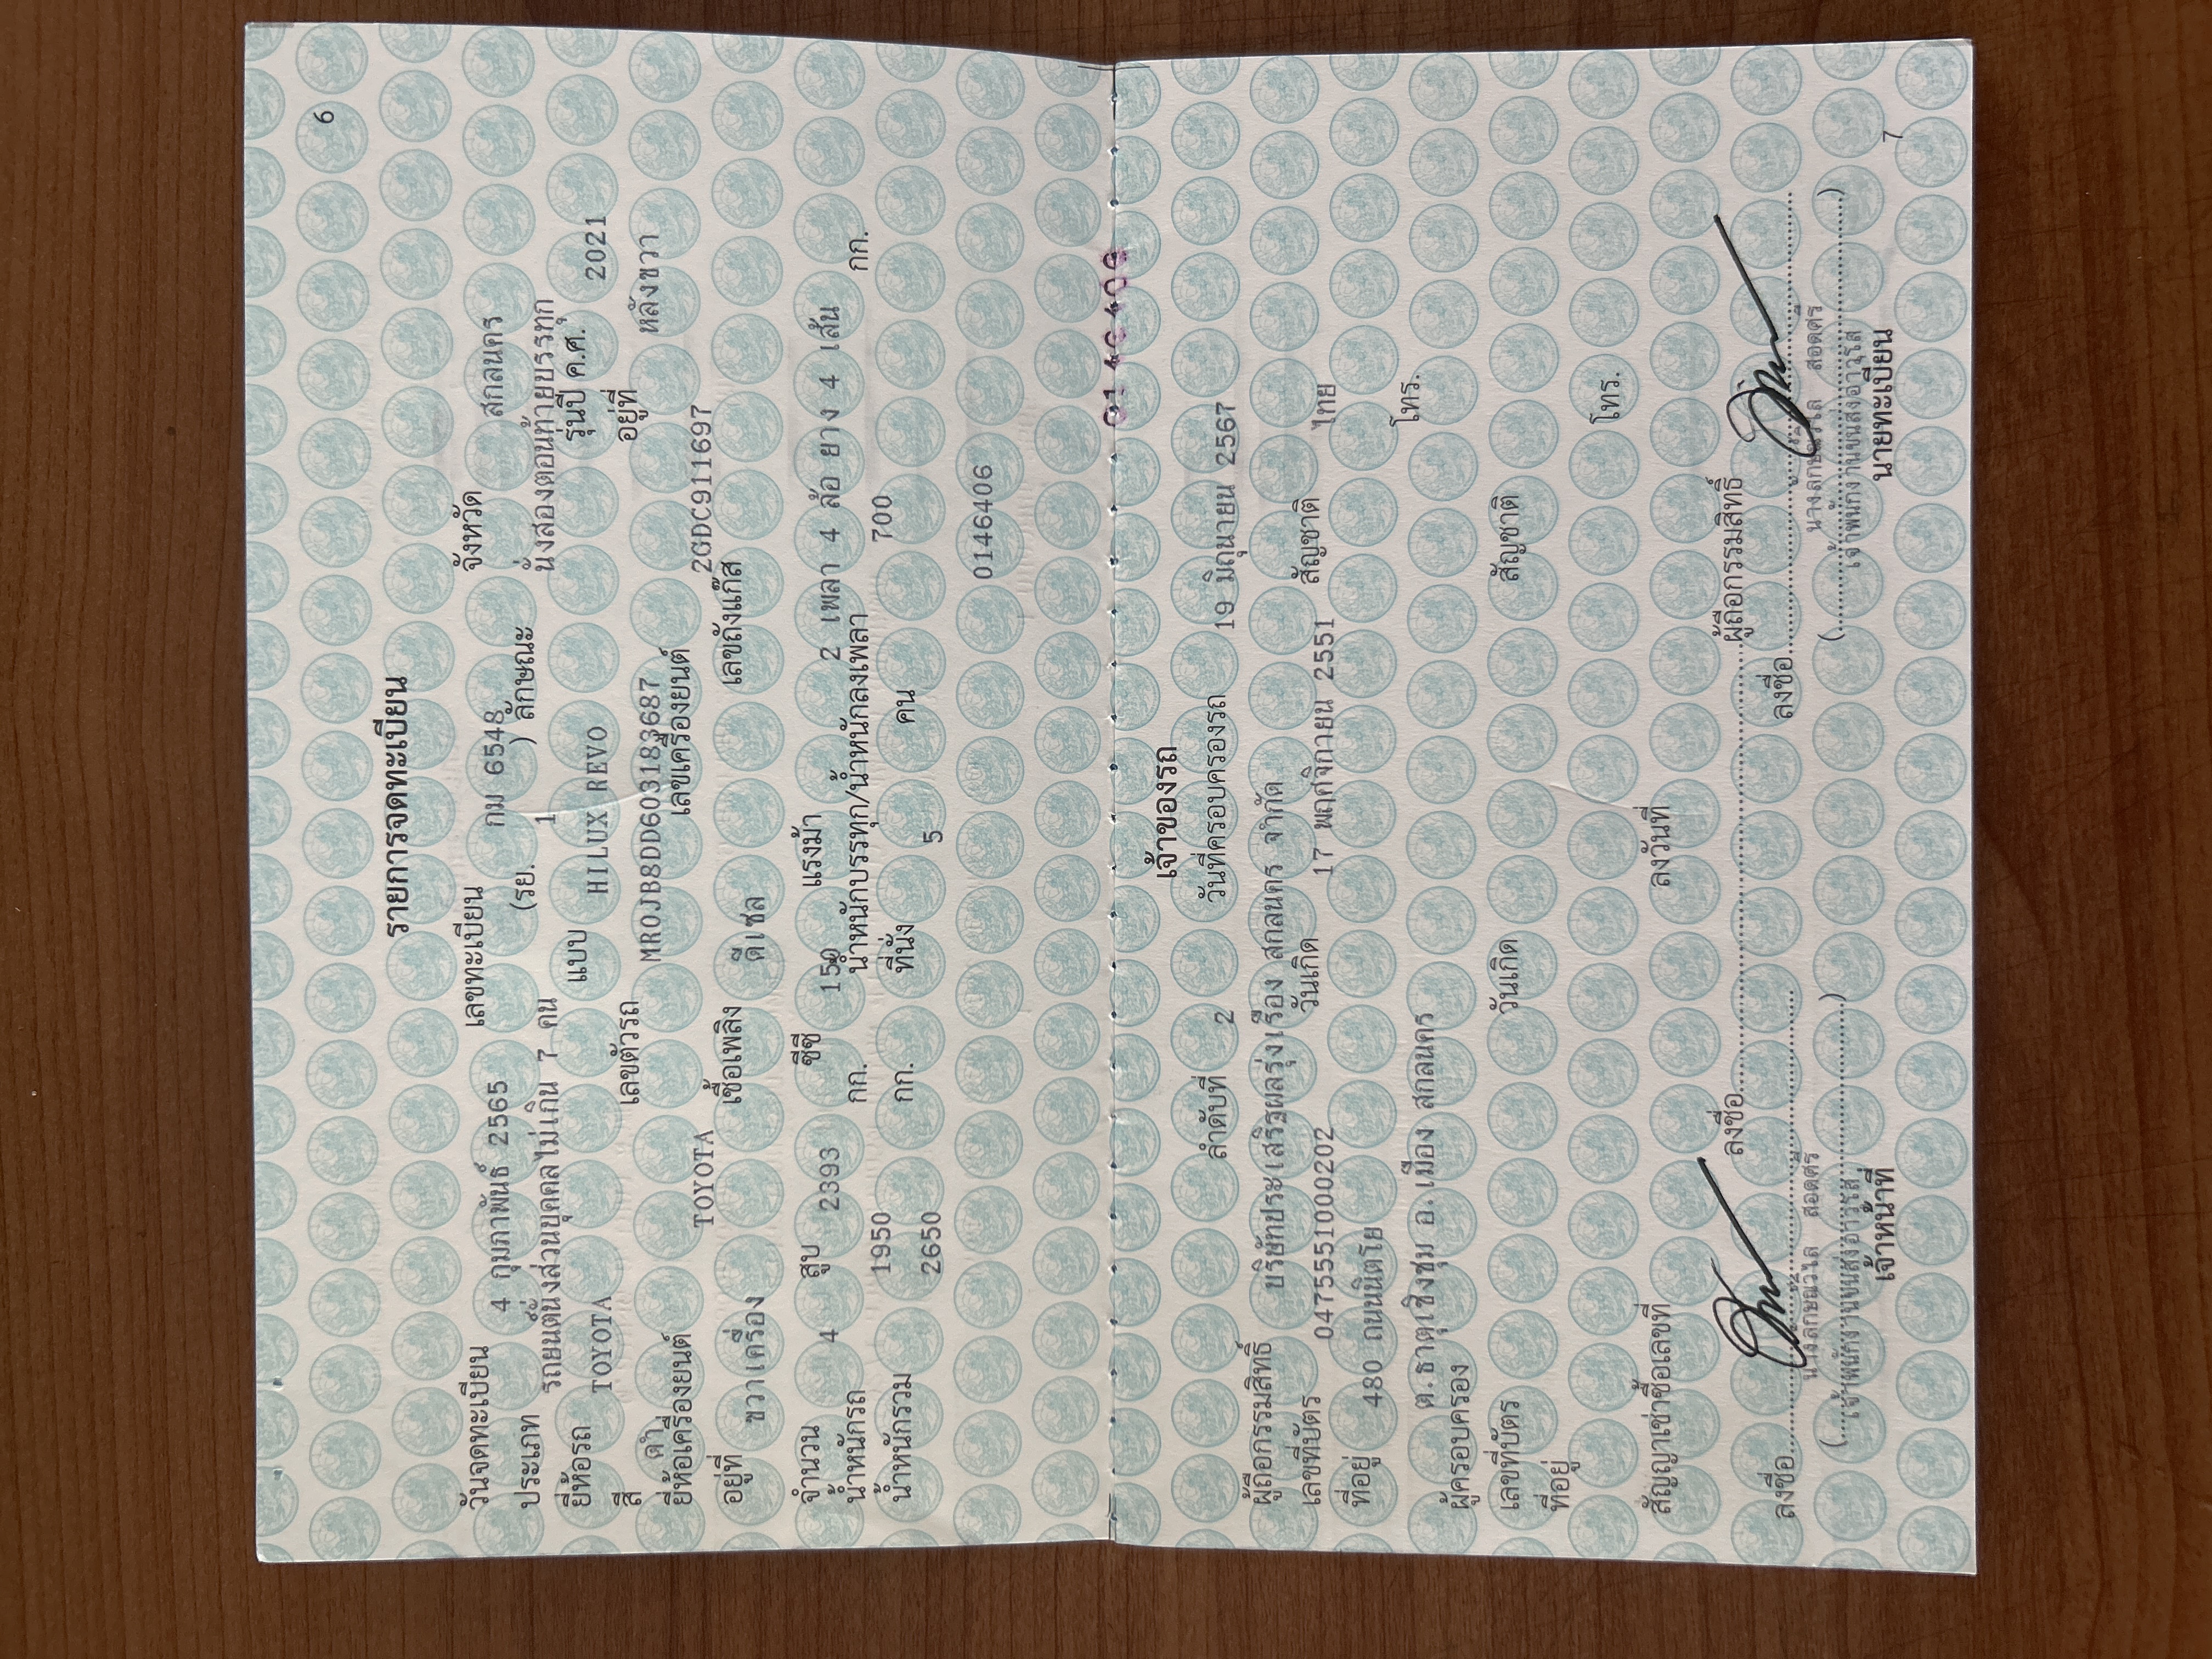 6
รายการจดทะเบียน
วันจดทะเบียน 4 กุมภาพันธ์ 2565 เลขทะเบียน กม 6548 จังหวัด สกลนคร
ประเภท รถยนต์นั่งส่วนบุคคลไม่เกิน 7 คน (รย. 1 ) ลักษณะ นั่งสองตอนท้ายบรรทุก
ยี่ห้อรถ TOYOTA แบบ HILUX REVO รุ่นปี ค.ศ. 2021
สี ดำ เลขตัวรถ MR0JB8DD603183687 อยู่ที่ หลังขวา
ยี่ห้อเครื่องยนต์ TOYOTA เลขเครื่องยนต์ 2GDC911697
อยู่ที่ ขวาเครื่อง เชื้อเพลิง ดีเซล เลขถังแก๊ส
จำนวน 4 สูบ 2393 ซีซี 150 แรงม้า 2 เพลา 4 ล้อ ยาง 4 เส้น
น้ำหนักรถ 1950 กก. น้ำหนักบรรทุก/น้ำหนักลงเพลา 700 กก.
น้ำหนักรวม 2650 กก. ที่นั่ง 5 คน
0146406
0146406
เจ้าของรถ
ลำดับที่ 2 วันที่ครอบครองรถ 19 มิถุนายน 2567
ผู้ถือกรรมสิทธิ์ บริษัทประเสริฐผลรุ่งเรือง สกลนคร จำกัด
เลขที่บัตร 0475551000202 วันเกิด 17 พฤศจิกายน 2551 สัญชาติ ไทย
ที่อยู่ 480 ถนนนิตโย
ต.ธาตุเชิงชุม อ.เมือง สกลนคร โทร.
ผู้ครอบครอง
เลขที่บัตร วันเกิด สัญชาติ
ที่อยู่
โทร.
สัญญาเช่าซื้อเลขที่ ลงวันที่
ลงชื่อ ผู้ถือกรรมสิทธิ์
ลงชื่อ ลงชื่อ
นางลักษณวิไล สอดศรี นางลักษณวิไล สอดศรี
(เจ้าพนักงานขนส่งอาวุโส) (เจ้าพนักงานขนส่งอาวุโส)
เจ้าหน้าที่ นายทะเบียน
7